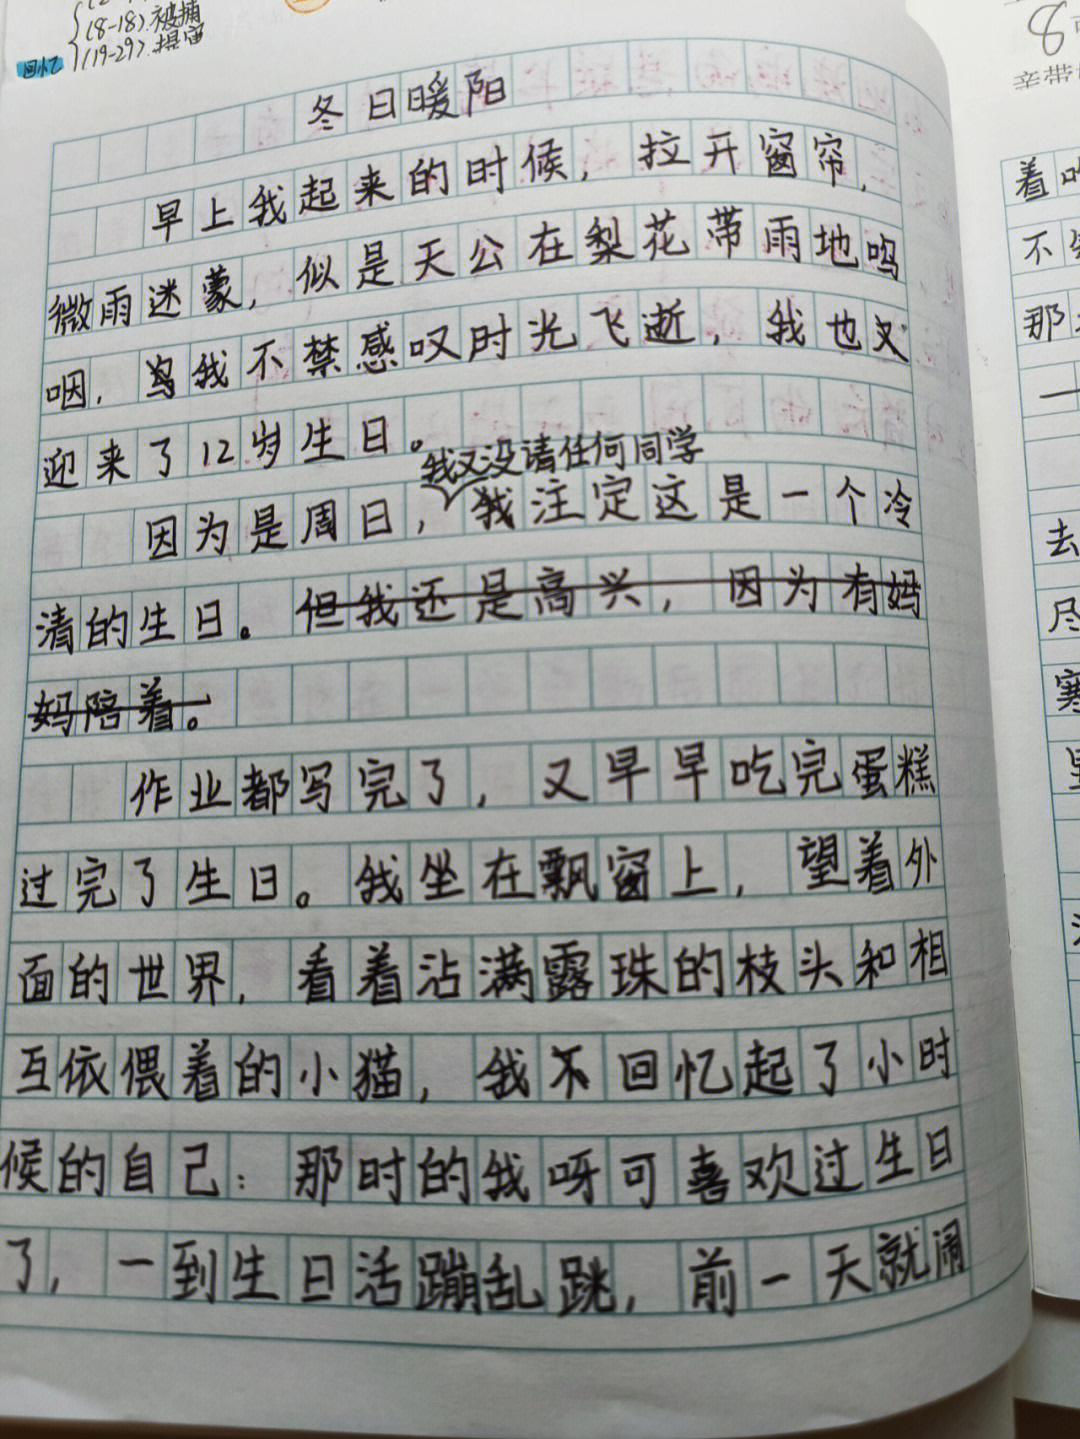 (8-18).被捕
回忆 (19-29).提审
冬日暖阳
早上我起来的时候，拉开窗帘，
微雨迷蒙，似是天公在梨花带雨地呜
咽，我不禁感叹时光飞逝，我也又
迎来了12岁生日。
我又没请任何同学
因为是周日，我注定这是一个冷
清的生日。但我还是高兴，因为有妈
妈陪着。
作业都写完了，又早早吃完蛋糕
过完了生日。我坐在飘窗上，望着外
面的世界，看着沾满露珠的枝头和相
互依偎着的小猫，我不回忆起了小时
候的自己：那时的我呀可喜欢过生日
了，一到生日活蹦乱跳，前一天就闹
8
亲带
着
不
那
一
去
尽
寒